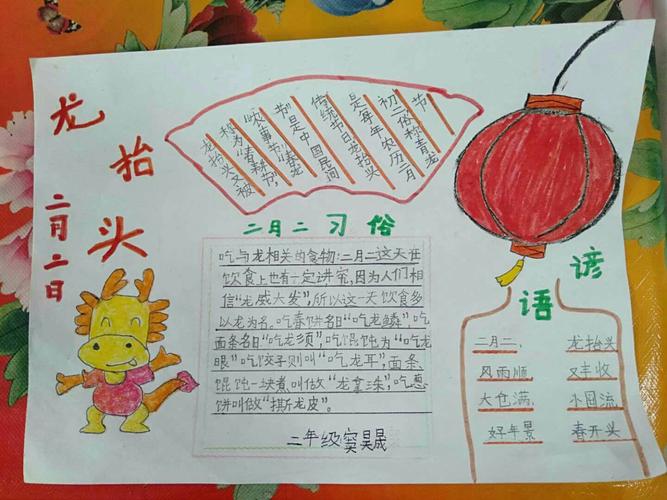 龙抬头
二月二日
龙抬头又被
称为“春耕节”,
“农事节”“春龙
节”是中国民间
传统节日.龙抬头
是每年农历二月
初二俗称青龙
节
二月二习俗
吃与龙相关的食物:二月二这天在
饮食上也有一定讲究,因为人们相
信“龙威大发”,所以这一天饮食多
以龙为名.吃春饼名曰“吃龙鳞”,吃
面条名曰“吃龙须”,吃馄饨为“吃龙
眼”吃饺子则叫“吃龙耳”,面条、
馄饨一块煮叫做“龙拿珠”,吃葱
饼叫做“撕龙皮”.
二年级窦昊晟
谚语
二月二、 龙抬头
风雨顺、 又丰收
大仓满、 小囤流
好年景 春开头